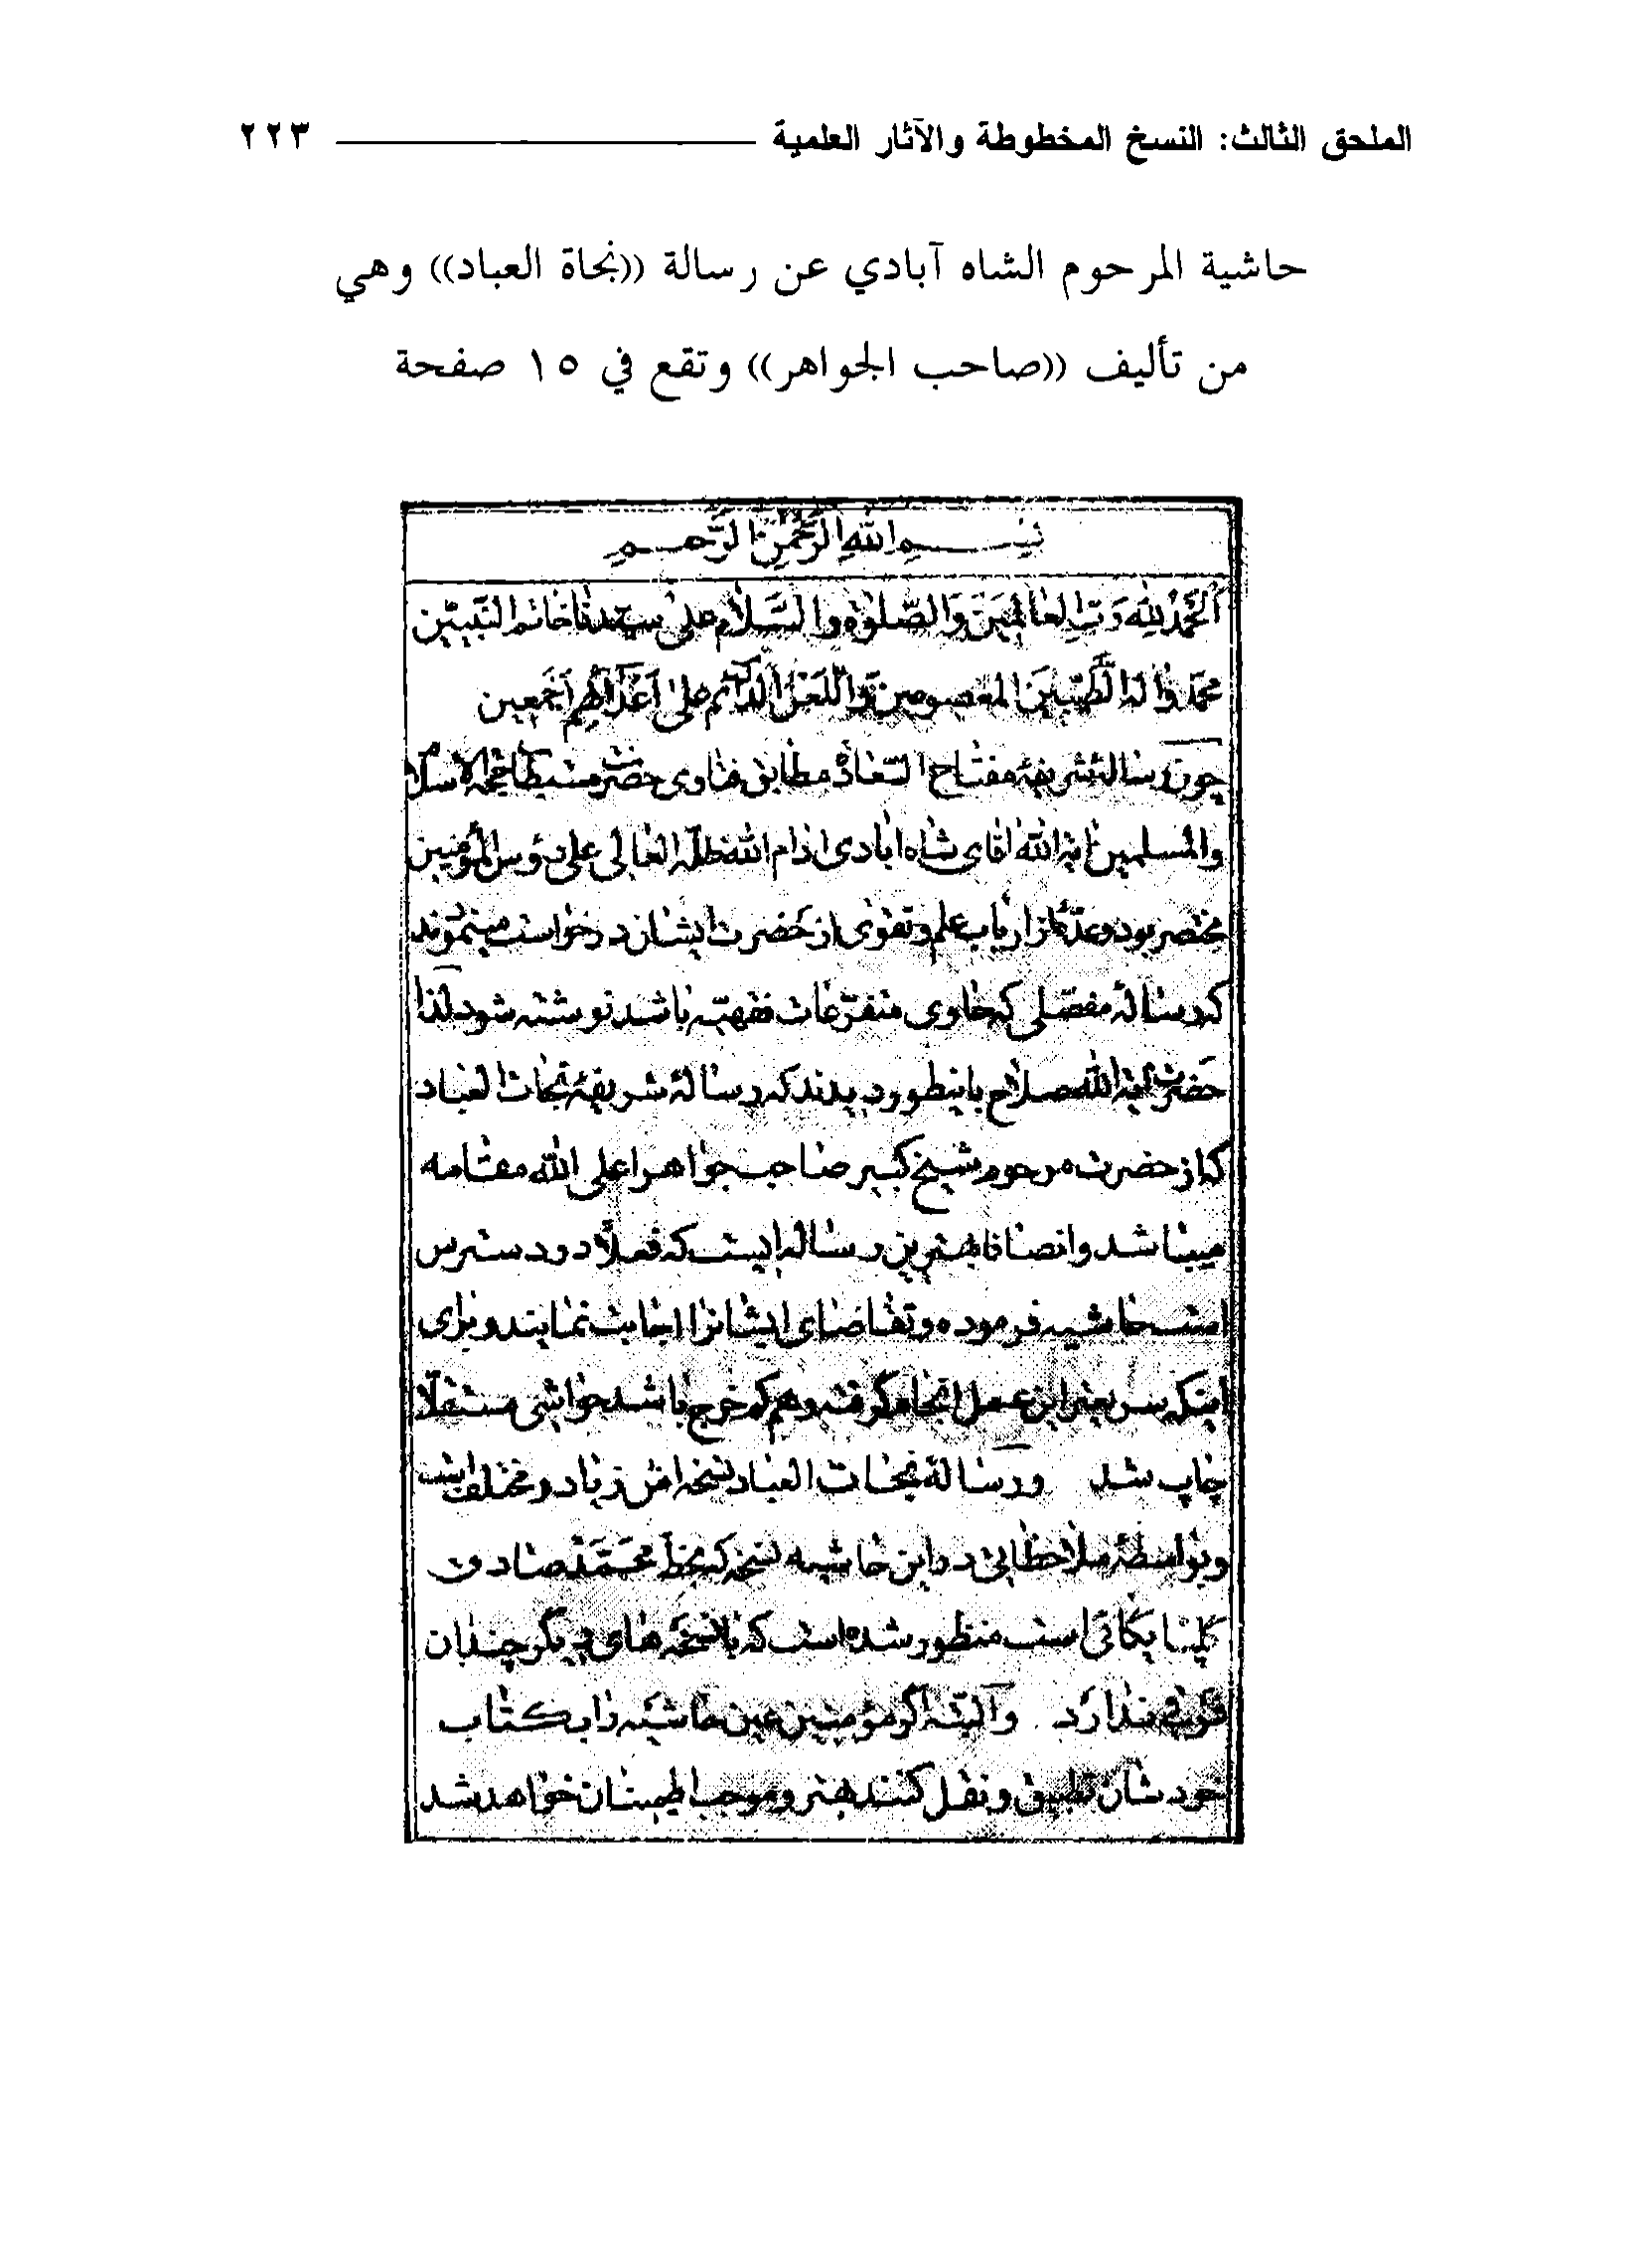 الملحق الثالث: النسخ المخطوطة والآثار العلمية ٢٢٣
حاشية المرحوم الشاه آبادي عن رسالة ((نجاة العباد)) وهي
من تأليف ((صاحب الجواهر)) وتقع في ١٥ صفحة
بسم الله الرحمن الرحیم
اَلحَمْدُ لِلّٰهِ رَبِّ العالَمینَ وَالصَّلوٰة والسَّلام علی سیدنا خاتم النَّبیّین
محمد واله الطَّیّبینَ المعصومین وَاللَّعن الدائم علی اَعْدائهِم اَجْمَعین
چون رسالهٔ شریفهٔ مفتاح السّعادة مطابق فتاوی حضرت مستطاب حجة الاسلام
والمسلمین ایة الله اقای شاه ابادی ادام الله ظله العالی علی رؤس المؤمنین
مختصر بود و عدّهٔ از ارباب علم و تقوی از حضرت ایشان درخواست مینمودند
که رسالهٔ مفصّلی که حاوی متفرّعات فقهیّه باشد نوشته شود لذا
حضرت ایة الله صلاح باینطور دیدند که رسالهٔ شریفهٔ نجات العباد
که از حضرت مرحوم شیخ کبیر صاحب جواهر اعلی الله مقامه
میباشد و انصافا بهترین رساله ایست که فعلاً در دسترس
است حاشیه فرموده و تقاضای ایشانرا اجابت نمایند و برای
اینکه سریعتر این عمل انجام گرفته و هم کم خرج باشد حواشی مستقلّا
چاپ شد و رسالة نجات العباد نسخه اش زیاد و مختلف است
و بواسطهٔ ملاحظاتی در این حاشیه نسخه که بخط محَمَّد صادق
گلپایگانی است منظور شده است که با نسخه های دیگر چندان
فرقی ندارد و البتّه اگر مؤمنین عین حاشیه را به کتاب
خودشان تطبیق و نقل کنند بهتر و موجب اطمینان خواهد شد